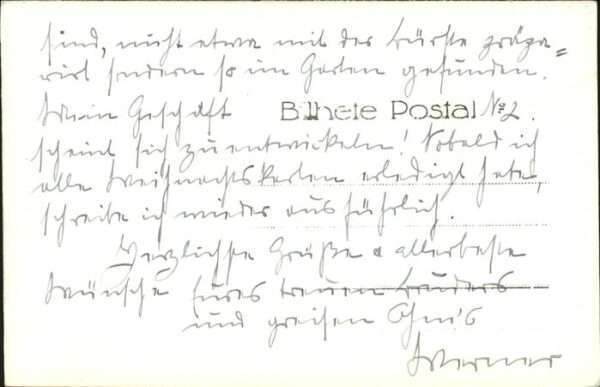 sind, nicht etwa mit der Bürste präpa=
riert sondern so im Garten gefunden.
Mein Geschäft Bilhete Postal № 2.
scheint sich zu entwickeln! Sobald ich
alle Weihnachtskarten erledigt habe,
schreibe ich wieder ausführlich.
Herzlichste Grüße & allerbeste
Wünsche Eures treuen Bruders
und greisen
Werner